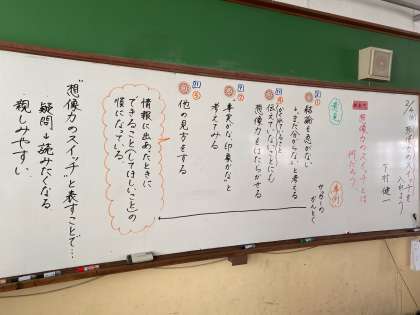 想像力のスイッチを
入れよう
下村 健一
想像力のスイッチとは
何だろう。
意見
事例
結論を急がない。
→「まだ分からないよね」と考える
サッカーの
かんとく
伝えていないことにも
想像力をはたらかせる
事実かな、印象かな」と
考えてみる
他の見方をする
情報に出あったときに
できること(してほしいこと)の
順になっている。
"想像力のスイッチ"と表すことで…
疑問→読みたくなる
親しみやすい